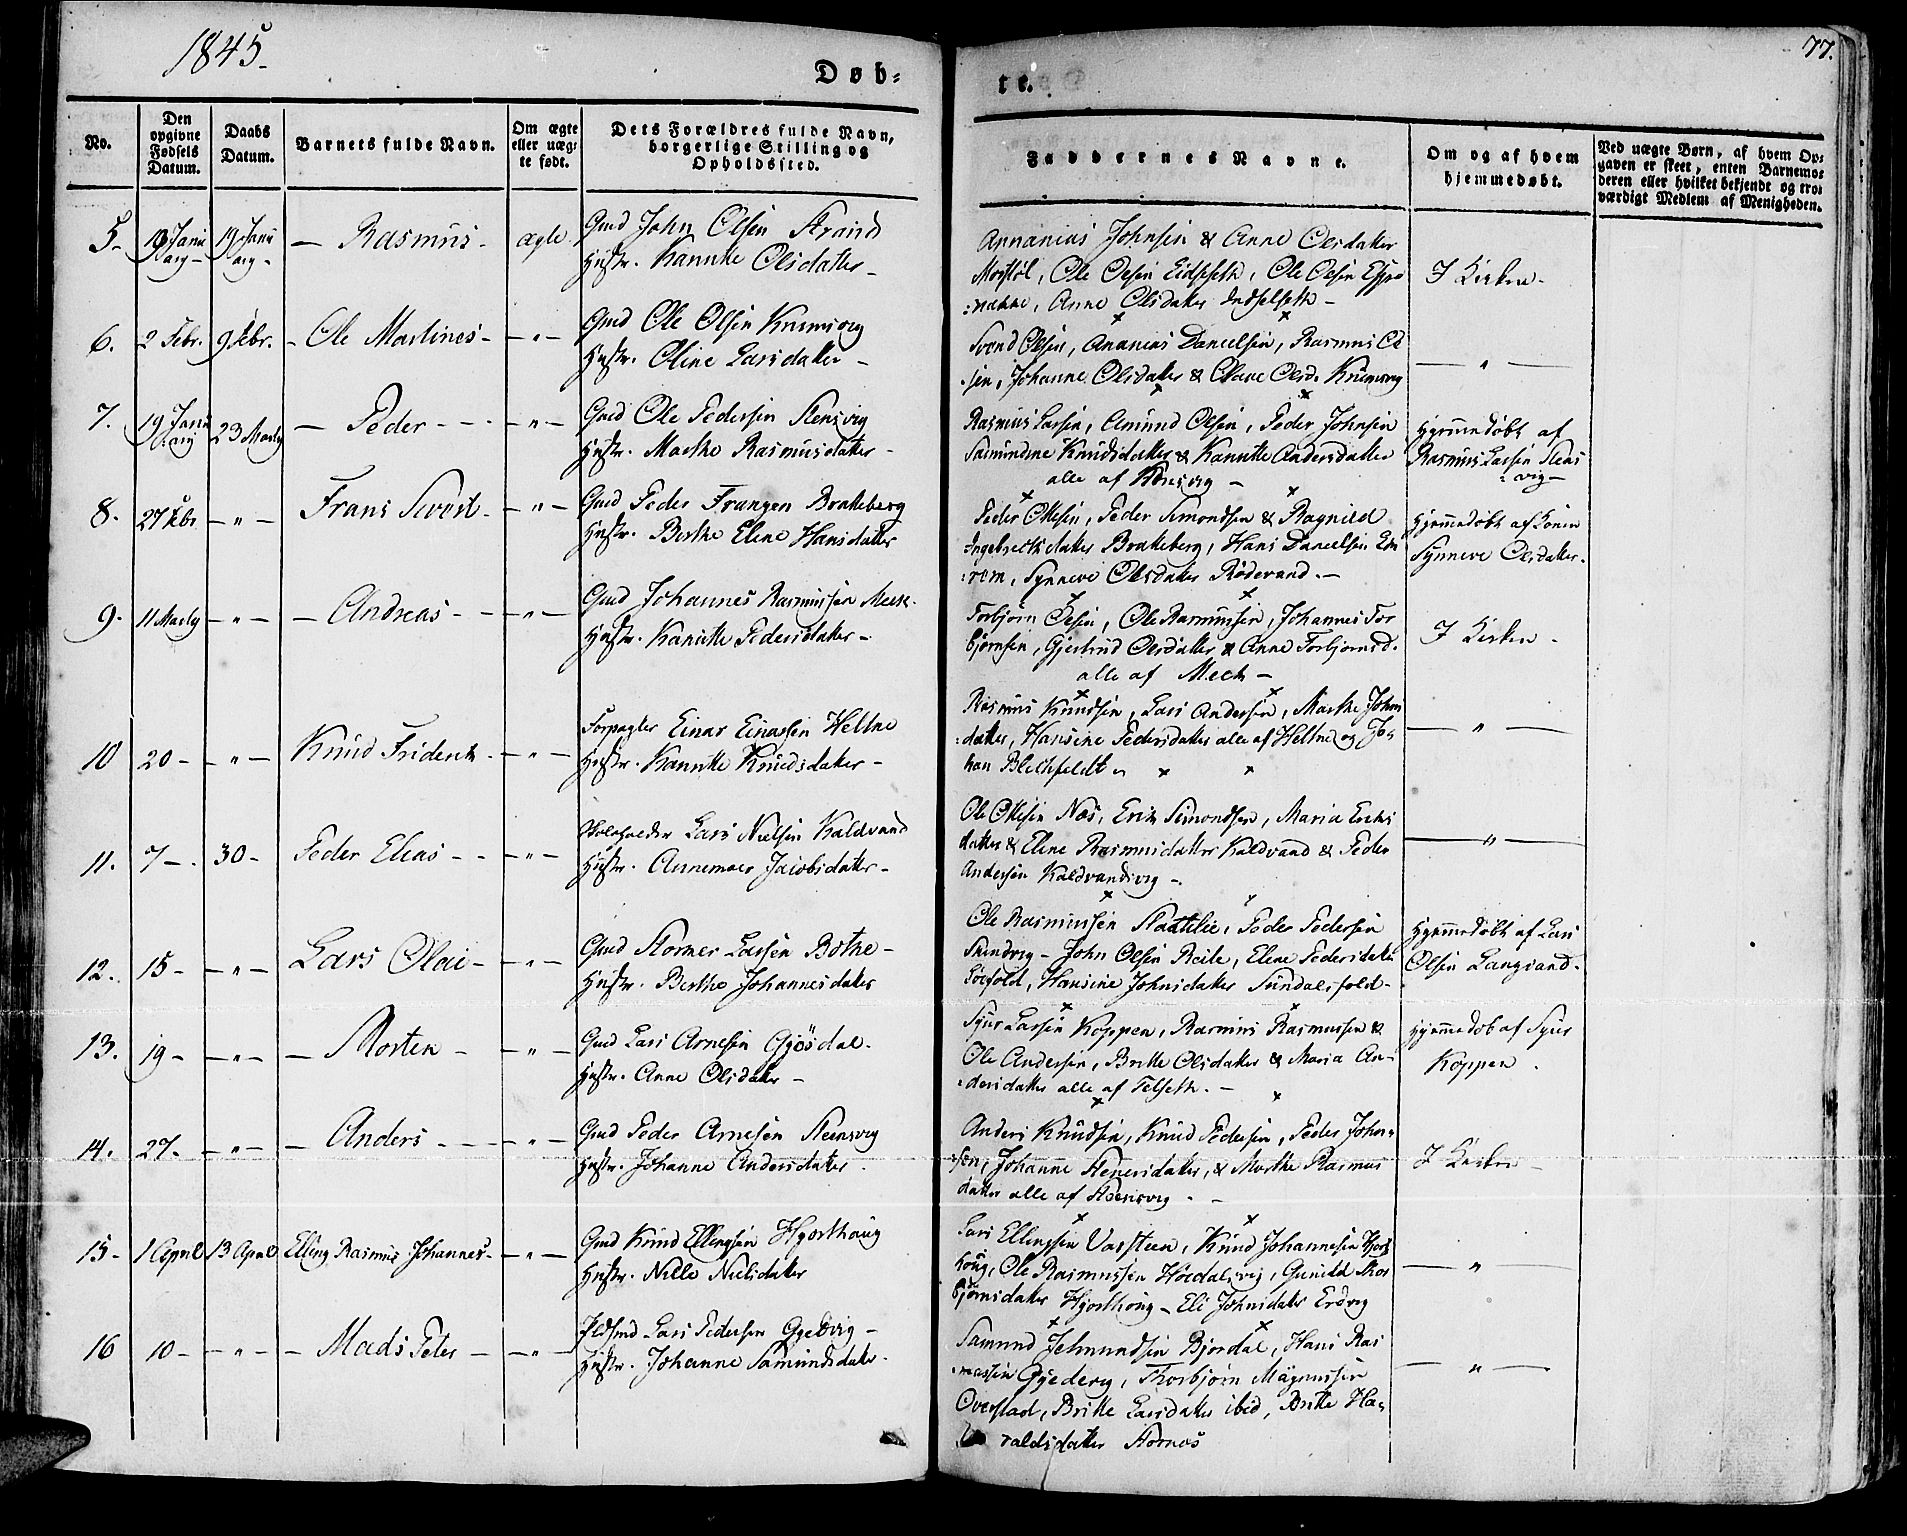 1845.
Døb-
te.
77.
No.
Den opgivne Fødsels Datum.
Daabs Datum.
Barnets fulde Navn.
Om ægte eller uægte født.
Dets Forældres fulde Navn, borgerlige Stilling og Opholdssted.
Faddernes Navne.
Om og af hvem hjemmedøbt.
Ved uægte Børn, af hvem Opgaven er skeet, enten Barnemoderen eller hvilket bekjendt og troværdigt Medlem af Menigheden.
5- 19 Januarij 19 Januarij - Rasmus - ægte Gmd John Olsen Strand
Hustr. Kanutte Olsdatter -
Annanias Johnsen & Anne Olsdatter
Ole Olsen Eidseth, Ole Olsen Espe
nakke, Anne Olsdatter Indselseth -
I Kirken -
6. 2 Febr. 9 Febr. - Ole Martines - - " - Gmd Ole Olsen Krumsvig
Hustr. Oline Larsdatter -
Svend Olsen, Ananias Danielsen, Rasmus Ol
sen, Johanne Olsdatter & Olave Olsd. Krumsvig
- " -
7. 19 Januarij 23 Marty - Peder - - - " - Gmd Ole Pedersen Stensvig
Hustr. Marthe Rasmusdatter -
Rasmus Larsen, Amund Olsen, Peder Johnsen
Samundine Knudsdatter & Kanutte Andersdatter
alle af Stensvig -
Hjemmedøbt af
Rasmus Larsen Stens
vig -
8. 27 Febr - " - Frans Sivert - - " - Gmd Peder Frangen Brakeberg
Hustr. Berthe Eline Hansdatter
Peder Ottesen, Peder Simondsen & Ragnild
Ingebrectsdatter Brakeberg, Hans Danielsen
Synneve Olsdatter Rødevand. -
Hjemmedøbt af Konen
Synneve Olsdatter.
9. 11 Marty - " - - Andreas - - " - Gmd Johannes Rasmussen Meek.
Hustr. Kanutte Pedersdatter -
Torbjørn Olsen, Ole Rasmussen, Johannes Tor
bjørnsen, Gjertrud Olsdatter & Anne Torbjørnsd.
alle af Meek -
I Kirken -
10 20 - - " - Knud Friderik - - " - Forpagter Einar Einarsen Heltne
Hustr. Kanutte Knudsdatter -
Rasmus Knudsen, Lars Andersen, Marthe Johns
datter, Hansine Pedersdatter alle af Heltne og Jo
han Blechfeldt
- " -
11. 7 - 30 - Peder Elias - - - " - Lars Nielsen Kaldvand
Hustr. Annemaer Jacobsdatter -
Ole Ottesen Næs, Erik Simondsen, Maria Eriks
datter & Eline Rasmusdatter Kaldvand & Peder
Andersen Kaldvandsvig -
- " -
12. 15 - - " - Lars Olai - - " - Gmd Størner Larsen Bothe -
Hustr. Berthe Johannesdatter
Ole Rasmussen Slattelie, Peder Pedersen
Skindvig - John Olsen Reite, Elene Pedersdatter
Hansine Johnsdatter Sundalsfold -
Hjemmedøbt af Lars
Olsen Langsand.
13. 19 - - " - - Morten - - " - Gmd Lars Arnesen Gjøsdal.
Hustr. Anne Olsdatter -
Syver Larsen Koppen, Rasmus Rasmussen &
Ole Andersen, Britte Olsdatter & Maria An-
dersdatter alle af Felseth. -
Hjemmedøb af Syver
Koppen.
14. 27. - " - - Anders - - - " - Gmd Peder Arnesen Steensvig
Hustr. Johanne Andersdatter.
Anders Knudsen, Knud Pedersen, Peder John-
sen, Johanne Stenersdatter, & Marthe Rasmus
datter alle af Steensvig. -
I Kirken -
15 - 1 April 13 April Elling Rasmus Johannes - - " - Gmd Knud Ellingsen Hjorthoug
Hustr. Nille Nielsdatter
Lars Ellingsen Varsteen, Knud Johannesen Hjort
houg, Ole Rasmussen Hoedalsvig, Gunild Thor
bjørnsdatter Hjorthoug - Eli Johnsdatter
- " -
16 10 - - " - - Mads Peter - - " - Lars Pedersen Gjedvig -
Hustr. Johanne Samundsdatter.
Samund Jetmundsen Bjørdal, Hans Ras
mussen Thorbjørn Magnussen
Overstad, Britte Larsdatter ibid, Britte Ha-
raldsdatter Stornes
- " -